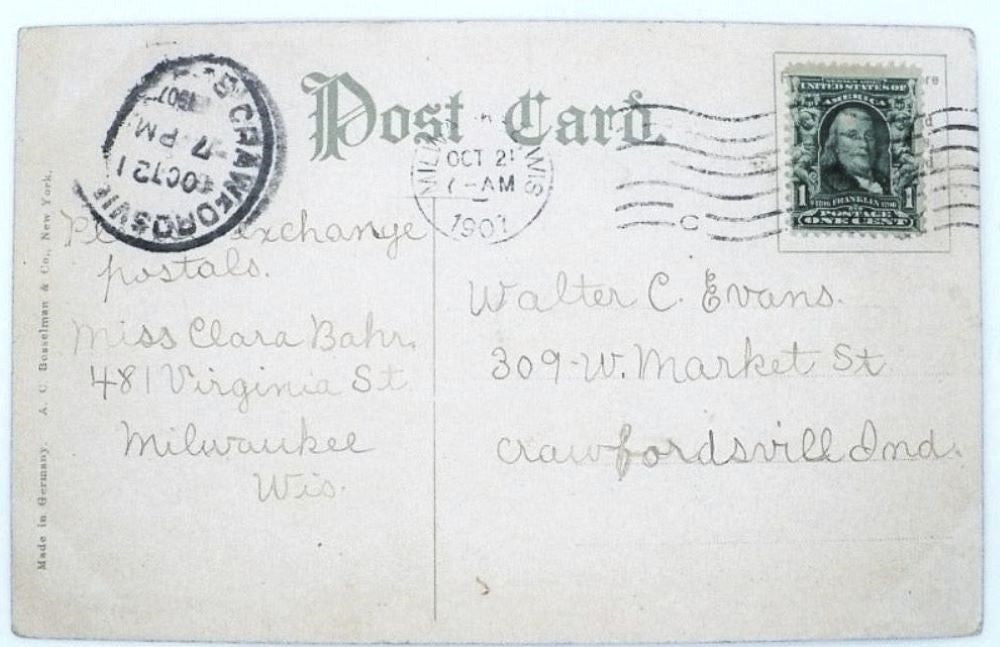 Post Card.
CRAWFORDSVI
7-PM
OCT 21
1907
MIL WIS
OCT 21
7-AM
1907
UNITED STATES OF
AMERICA
1 1
FRANKLIN
POSTAGE
ONE CENT
exchange
postals.
Miss Clara Bahr.
481 Virginia St
Milwaukee
Wis.
Walter C. Evans.
309-W. Market St
Crawfordsvill Ind.
Made in Germany. A. C. Bosselman & Co., New York.